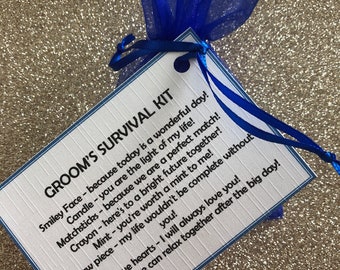 GROOM'S SURVIVAL KIT
Smiley Face - because today is a wonderful day!
Candle - you are the light of my life!
Matchsticks - because we are a perfect match!
Crayon - here's to a bright future together!
Mint - you're worth a mint to me!
piece - my life wouldn't be complete without
you!
hearts - I will always love you!
can relax together after the big day!